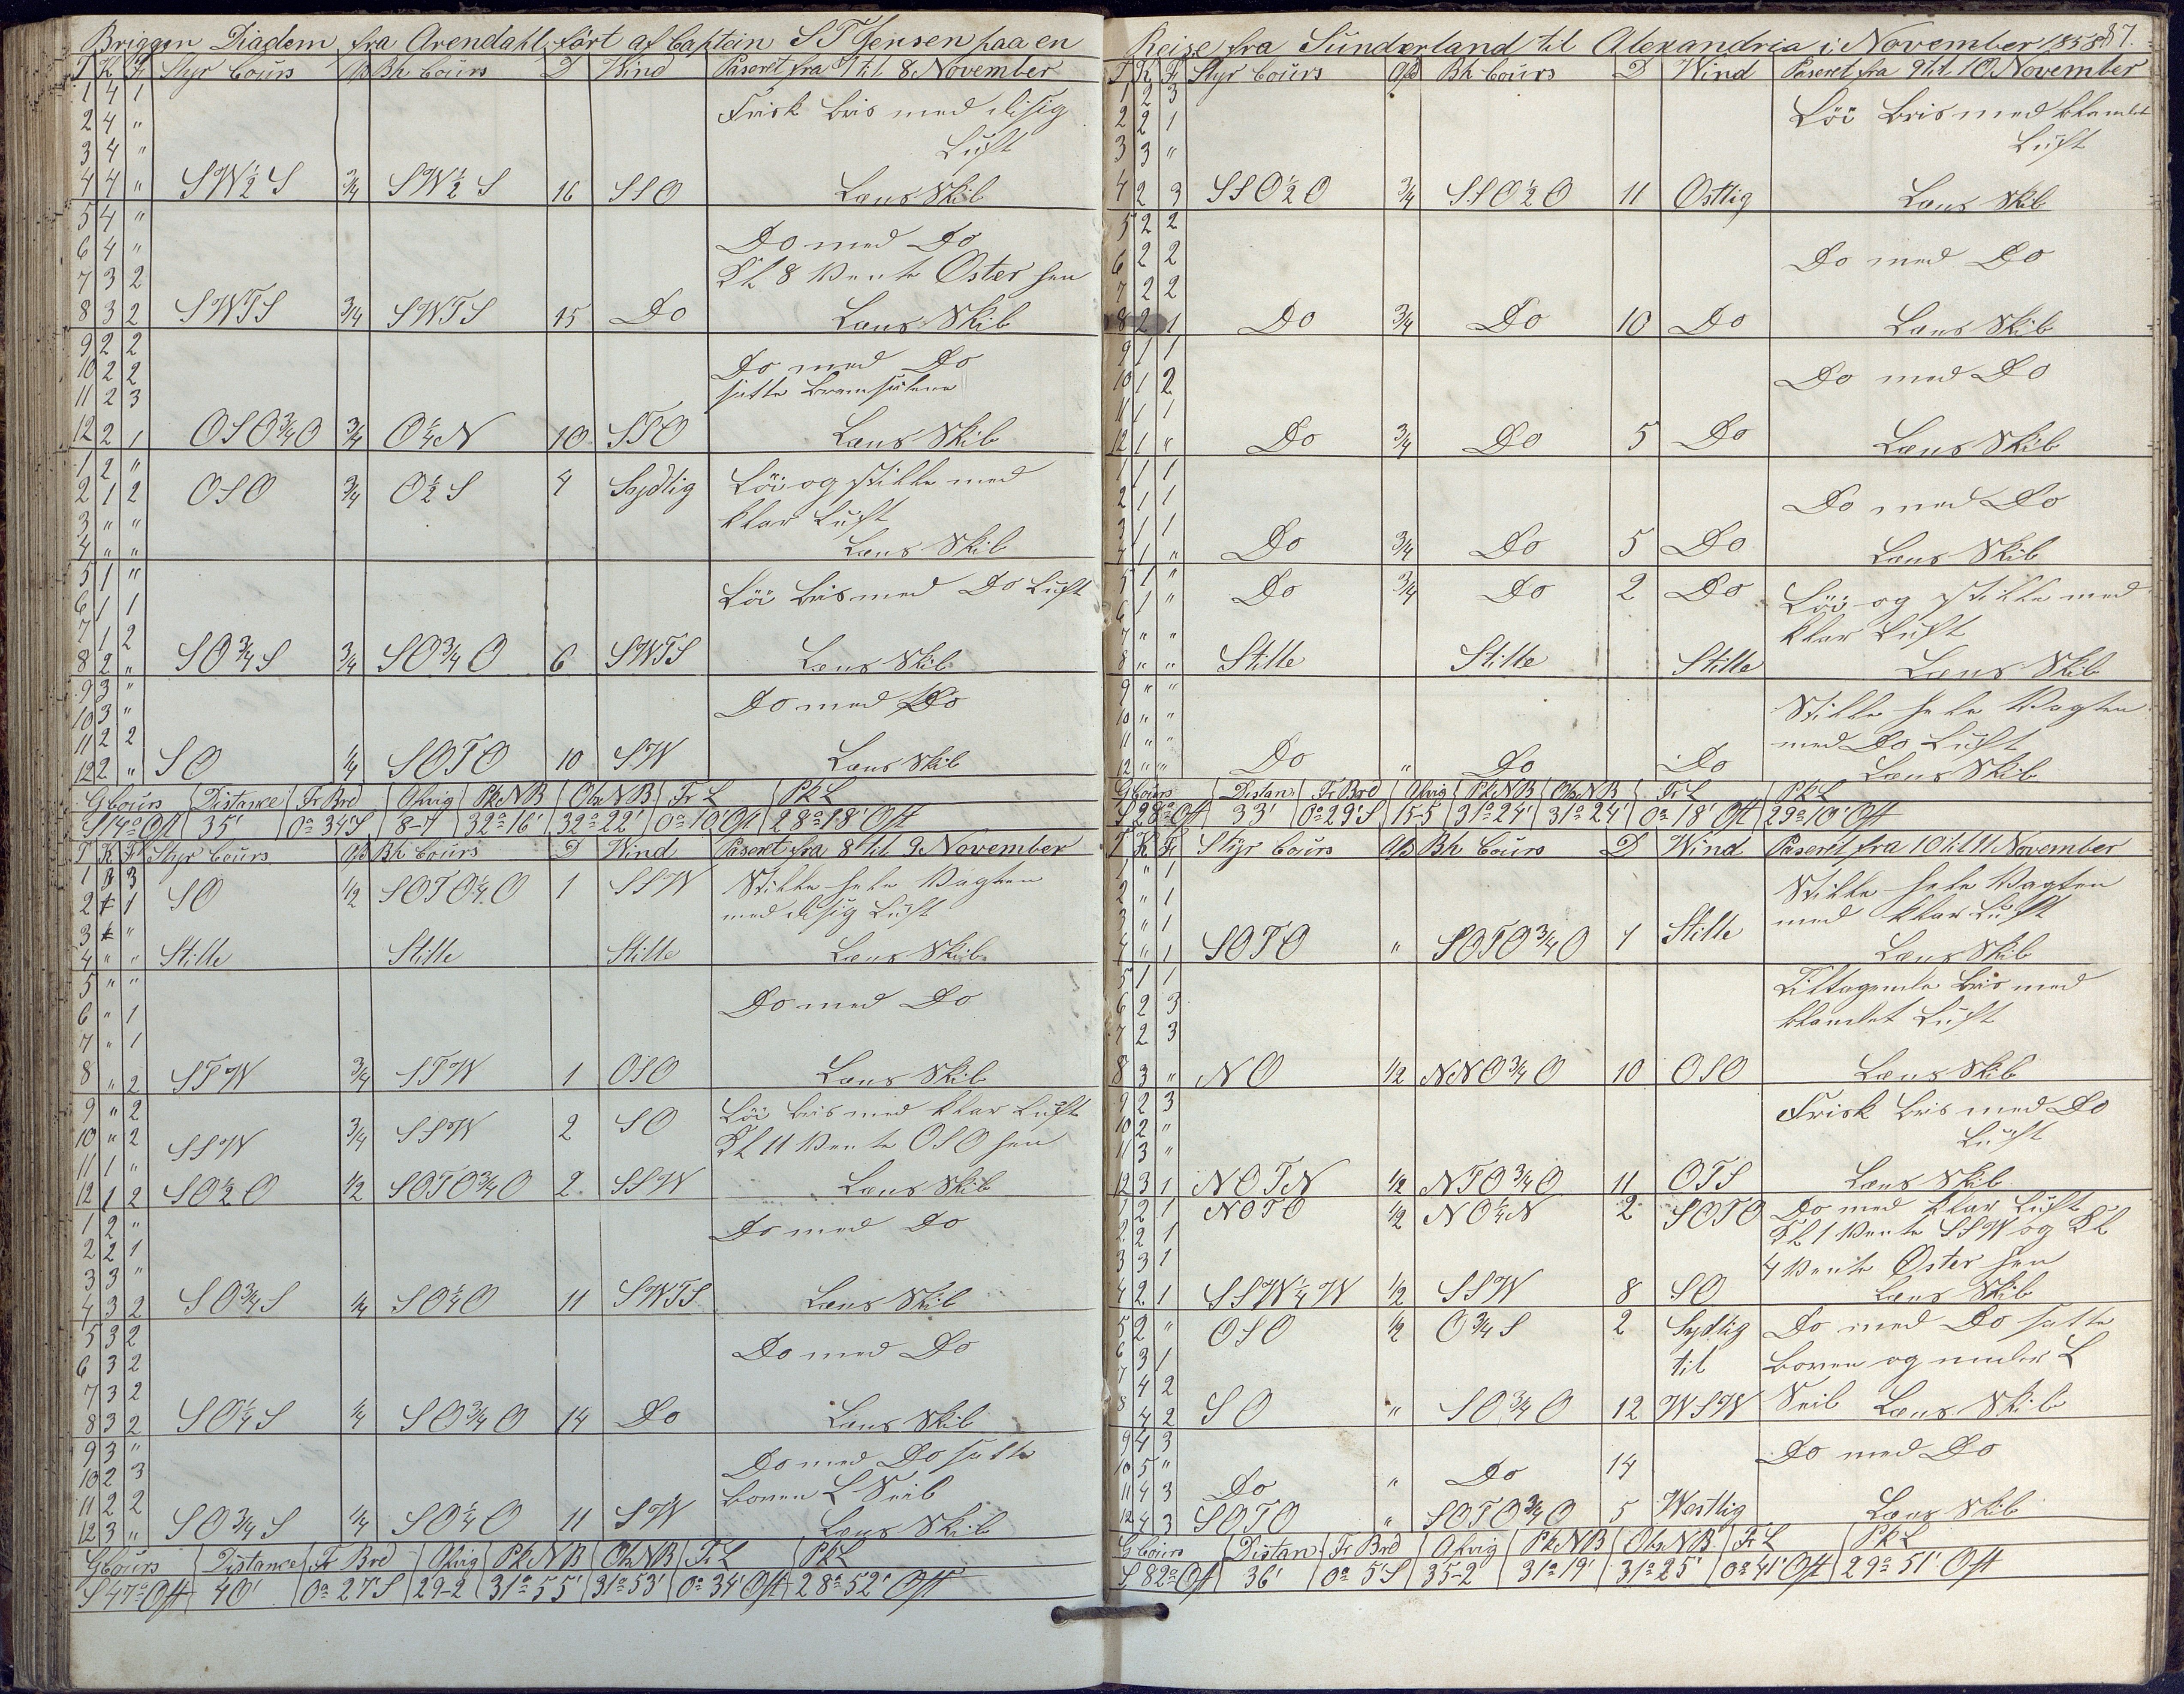 Briggen Diadem fra Arendahl ført af Captein S T Jensen paa en
T K F Styr Cours Afd Bh Cours D Wind Paseret fra 7 til 8 November
1 4 1 Frisk Bris med disig
2 4 "
3 4 " Luft
4 4 " SW½S ¾ SW½S 16 SSO Læns Skib
5 4 "
6 4 " Do med Do
7 3 2 Kl 8 Vente Øster hen
8 3 2 SWTS ¾ SWTS 15 Do Læns Skib
9 2 2
10 2 2 Do med Do
11 2 3 satte Bramseilene
12 2 1 OSO¾O ¾ O¼N 10 STO Læns Skib
1 2 "
2 1 2 OSO ¾ O½S 4 Sydlig Löi og stille med
3 " " klar Luft
4 " " Læns Skib
5 1 " Löi Bris med Do Luft
6 1 1
7 1 2
8 2 " SO¾S ¾ SO¾O 6 SWTS Læns Skib
9 3 "
10 3 " Do med Do
11 2 2
12 2 " SO ¼ SOTO 10 SW Læns Skib
G Cours Distance Fr Brd Abvig Pk NB Obs NB Fr L Pk L
S 14° Ost 35' 0° 34' S 8-7 32° 16' 32° 22' 0° 10' Ost 28° 18' Ost
T K F Styr Cours Afd Bh Cours D Wind Paseret fra 8 til 9 November
1 3 Stille hele Vagten
2 1 SO ½ SOTO¼O 1 SSW med disig Luft
3 "
4 " " Stille Stille Stille Læns Skib
5 " "
6 " 1 Do med Do
7 " 1
8 " 2 STW ¾ STW 1 OSO Læns Skib
9 " 2 Löi Bris med klar Luft
10 " 2 SSW ¾ SSW 2 SO Kl 11 Vente OSO hen
11 1 "
12 1 2 SO½O ½ SOTO¾O 2 SSW Læns Skib
1 2 " Do med Do
2 2 1
3 3 "
4 3 2 SO¾S ¼ SO¼O 11 SWTS Læns Skib
5 3 2
6 3 2 Do med Do
7 3 2
8 3 2 SO¼S ¼ SO¾O 14 Do Læns Skib
9 3 " Do med Do satte
10 2 3 Boven L Seil
11 2 2
12 3 " SO¾S ¼ SO¼O 11 SW Læns Skib
G Cours Distance Fr Brd Abvig Pk NB Obs NB Fr L Pk L
S 47° Ost 40' 0° 27' S 29-2 31° 55' 31° 53' 0° 34' Ost 28° 52' Ost
Reise fra Sunderland til Alexandria i November 1858 87.
T K F Styr Cours Afd Bh Cours D Wind Paseret fra 9 til 10 November
1 2 3 Löi Bris med blandet
2 2 1
3 3 " Luft
4 2 3 SSO½O ¾ SSO½O 11 Ostlig Læns Skib
5 2 2
6 2 2 Do med Do
7 2 2
8 2 1 Do ¾ Do 10 Do Læns Skib
9 1 1
10 1 2 Do med Do
11 1 1
12 1 " Do ¾ Do 5 Do Læns Skib
1 1 1
2 1 1 Do med Do
3 1 1
4 1 " Do ¾ Do 5 Do Læns Skib
5 1 " Do ¾ Do 2 Do Löi og stille med
6 1 "
7 " " klar Luft
8 " " Stille Stille Stille Læns Skib
9 " " Stille hele Vagten
10 " "
11 " " med Do Luft
12 " " Do " Do Do Læns Skib
G Cours Distan Fr Brd Abvig Pk NB Obs NB Fr L Pk L
S 28° Ost 33' 0° 29' S 15-5 31° 24' 31° 24' 0° 18' Ost 29° 10' Ost
T K F Styr Cours Afd Bh Cours D Wind Paseret fra 10 til 11 November
1 " 1 Stille hele Vagten
2 " 1
3 " 1 med klar Luft
4 " 1 SOTO " SOTO¾O 1 Stille Læns Skib
5 1 1 Tiltagende Bris med
6 2 3
7 2 3 blandet Luft
8 3 " NO ½ NNO¾O 10 OSO Læns Skib
9 2 3 Frisk Bris med Do
10 2 "
11 3 " Luft
12 3 1 NOTN ½ NTO¾O 11 OTS Læns Skib
1 2 1 NOTO ½ NO¼N 2 SOTO Do med klar Luft
2 2 1 Kl 1 Vente SSW og Kl
3 3 1 4 Vente Øster hen
4 2 1 SSW¼W ½ SSW 8 SO Læns Skib
5 2 " OSO ½ O¾S 2 Sydlig Do med Do satte
6 3 1 til Boven og under L
7 4 2
8 4 2 SO " SO¾O 12 WSW Seil Læns Skib
9 4 3 Do med Do
10 5 "
11 4 3 Do " Do 14
12 4 3 SOTO " SOTO¾O 5 Westlig Læns Skib
G Cours Distan Fr Brd Abvig Pk NB Obs NB Fr L Pk L
S 82° Ost 36' 0° 5' S 35-2 31° 19' 31° 25' 0° 41' Ost 29° 51' Ost